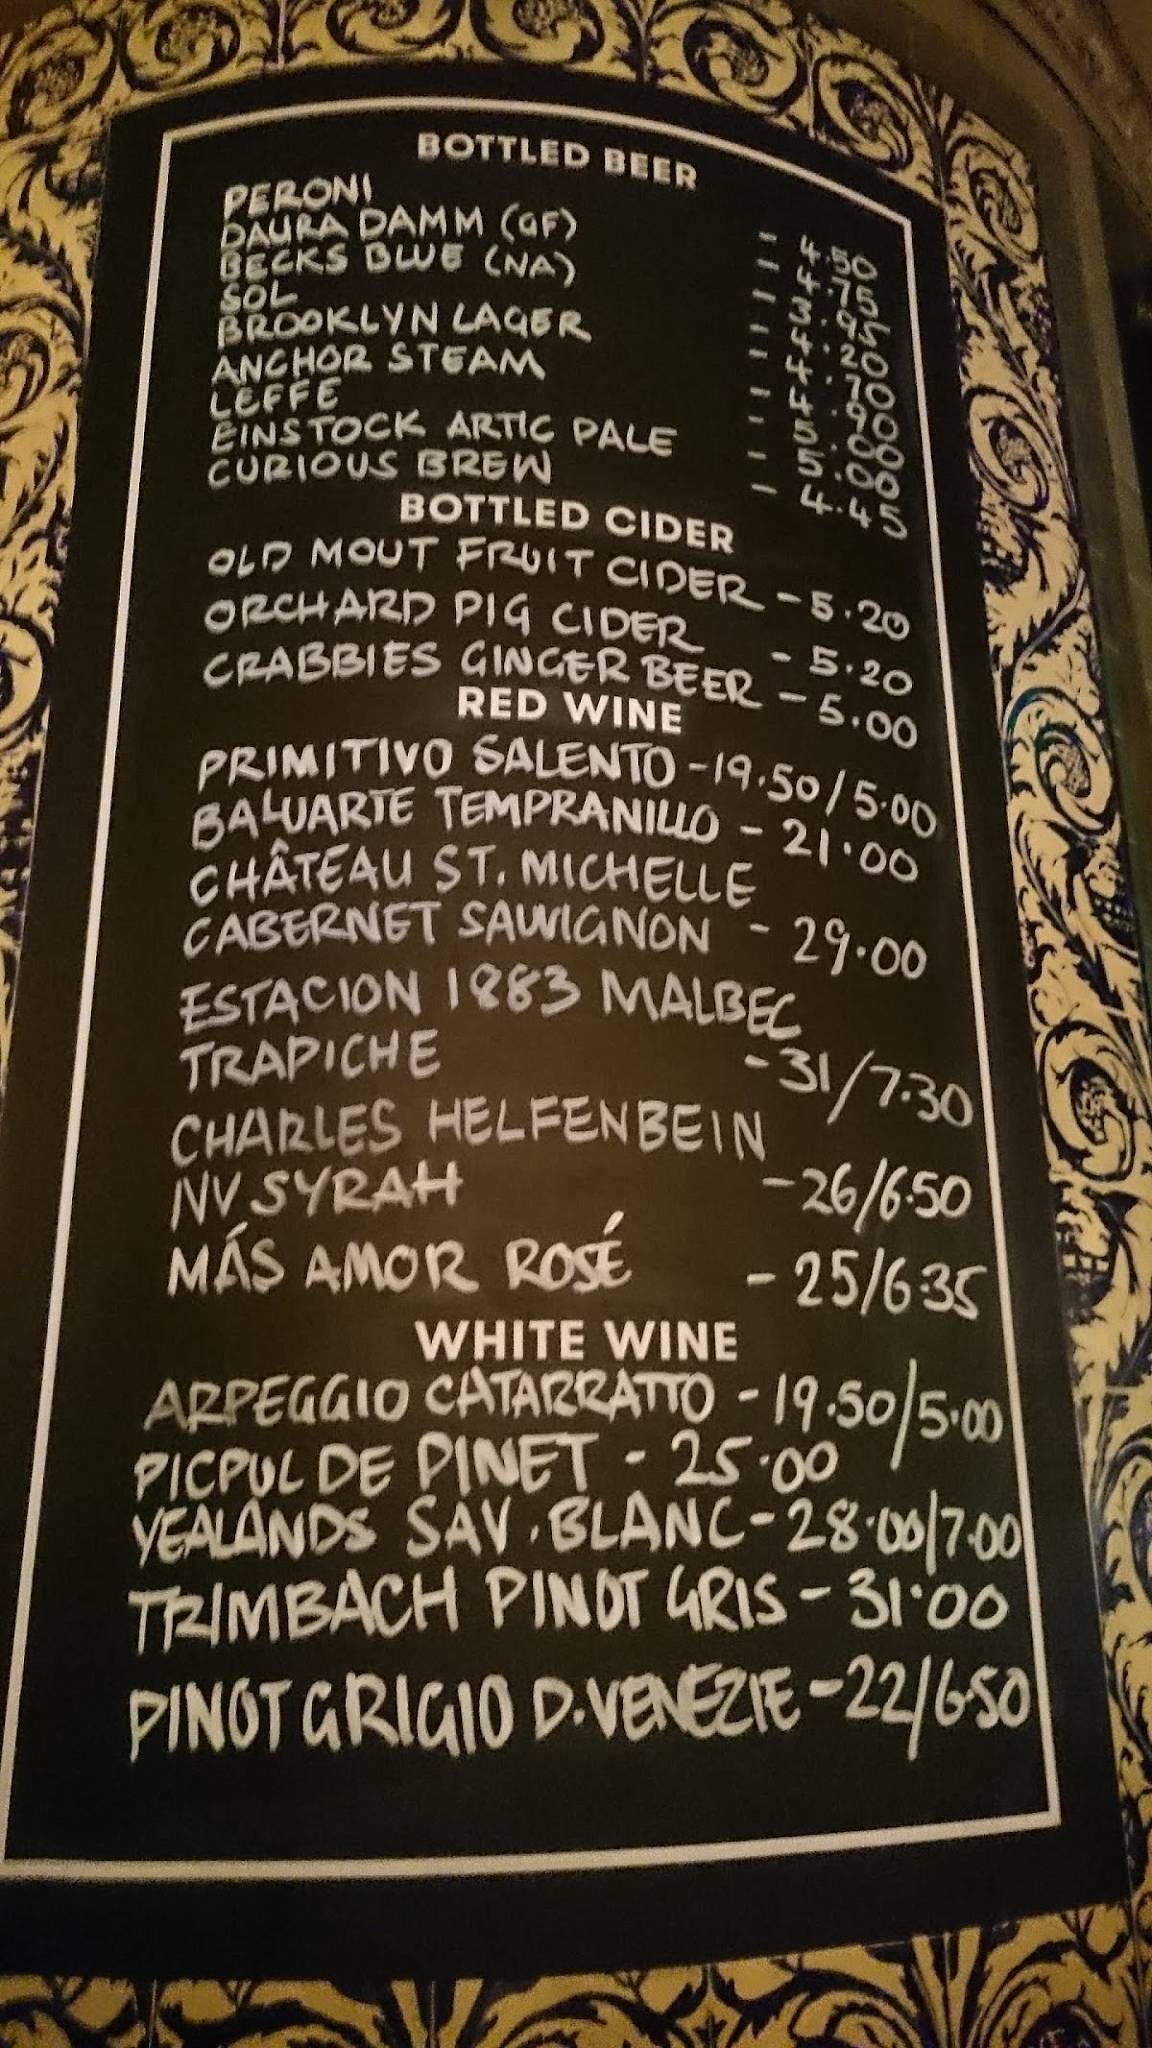 BOTTLED BEER
PERONI - 4.50
DAURA DAMM (GF) - 4.75
BECKS BLUE (NA) - 3.95
SOL - 4.20
BROOKLYN LAGER - 4.70
ANCHOR STEAM - 4.90
LEFFE - 5.00
EINSTOCK ARTIC PALE - 5.00
CURIOUS BREW - 4.45
BOTTLED CIDER
OLD MOUT FRUIT CIDER - 5.20
ORCHARD PIG CIDER - 5.20
CRABBIES GINGER BEER - 5.00
RED WINE
PRIMITIVO SALENTO - 19.50/5.00
BALUARTE TEMPRANILLO - 21.00
CHÂTEAU ST. MICHELLE
CABERNET SAUVIGNON - 29.00
ESTACION 1883 MALBEC
TRAPICHE - 31/7.30
CHARLES HELFENBEIN
NV SYRAH - 26/6.50
MÁS AMOR ROSÉ - 25/6.35
WHITE WINE
ARPEGGIO CATARRATTO - 19.50/5.00
PICPUL DE PINET - 25.00
YEALANDS SAV. BLANC - 28.00/7.00
TRIMBACH PINOT GRIS - 31.00
PINOT GRIGIO D. VENEZIE - 22/6.50